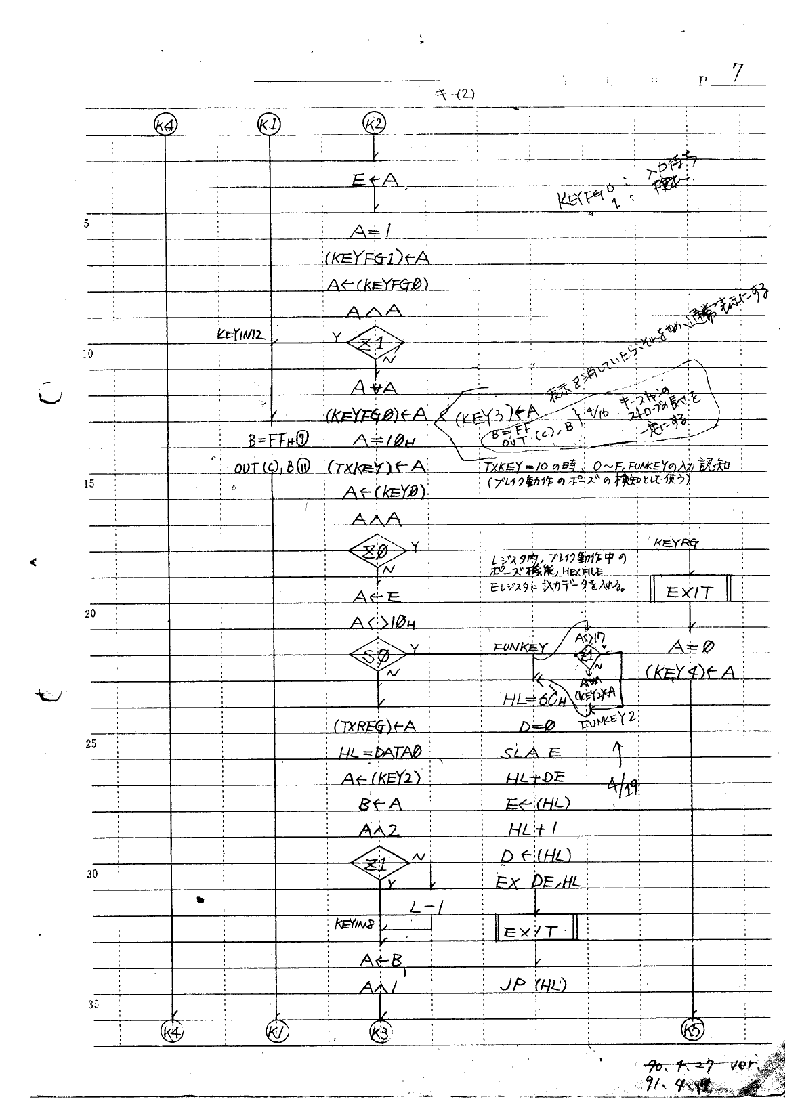 P 7
キー(2)
K4
K1
K2
E←A
KEYFG0:入力待ち
5
A=1
(KEYFG1)←A
A←(KEYFG0)
A∧A
KEYIN12
Y
Z1
N
10
A∀A
(KEYFG0)←A
(KEY3)←A
B=FF
OUT (C), B
4/16
キースキャンの
ストローブの長さを
一定にする
表示を消していたら、そのための通常表示にする
B=FFH⑦
A=10H
OUT (C), B⑪
(TXKEY)←A
TXKEY=10の時、0~F, FUNKEYの入力認知
(ブレイク動作のポーズの検知として使う)
15
A←(KEY0)
A∧A
Z0
Y
N
レジスタ内, ブレイク動作中の
ポーズ検索, HEXFILE
Eレジスタに入力データを入れる。
KEYRG
EXIT
20
A←E
A<>10H
S0
Y
N
FUNKEY
A<>17
Z1
N
A=0
(KEY4)←A
HL=60H
(KEY2)←A
FUNKEY2
(TXREG)←A
D=0
25
HL=DATA0
SLA E
A←(KEY2)
HL+DE
4/19
B←A
E←(HL)
A∧2
HL+1
30
Z1
N
Y
D←(HL)
EX DE,HL
L-1
KEYIN8
EXIT
A←B
A∧1
JP (HL)
35
K4
K1
K3
K5
90.4.27 ver.
91.4.